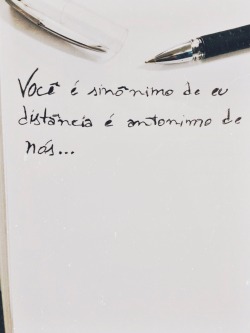 Você é sinônimo de eu
distância é antonimo de
nós...